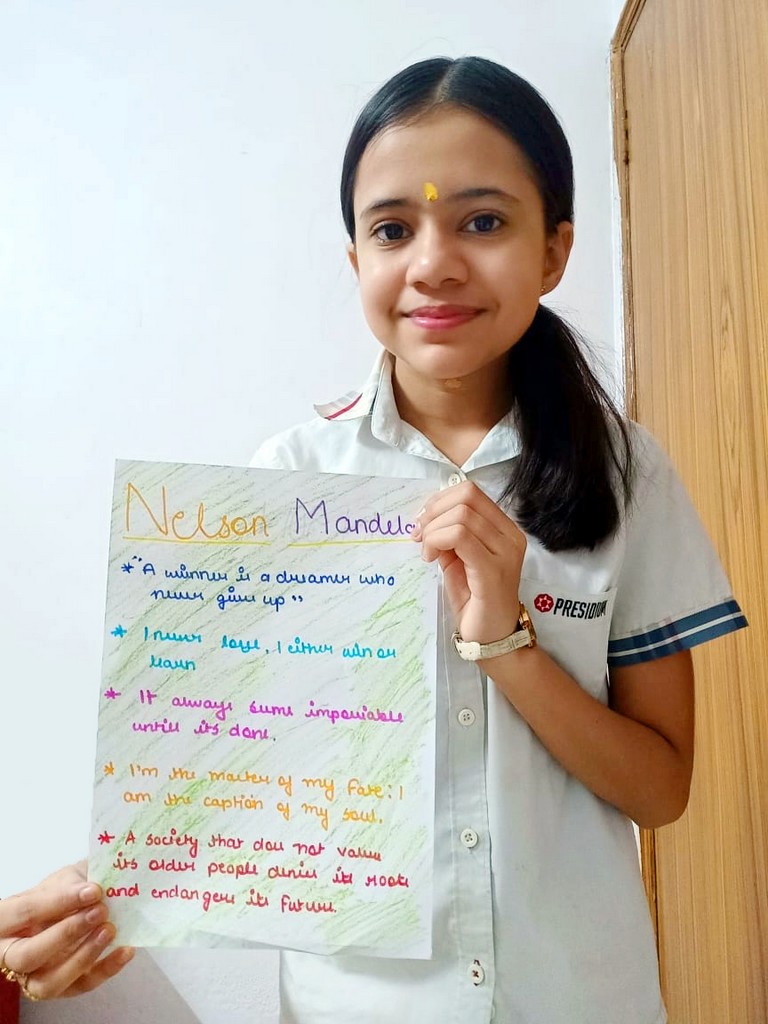 Nelson Mandela
* "A winner is a dreamer who
never gives up"
* I never lose, I either win or
learn
* It always seems impossiable
untill its done.
* I'm the master of my fate: I
am the caption of my soul.
* A society that does not value
its older people denies its roots
and endangers its future.
PRESIDIUM